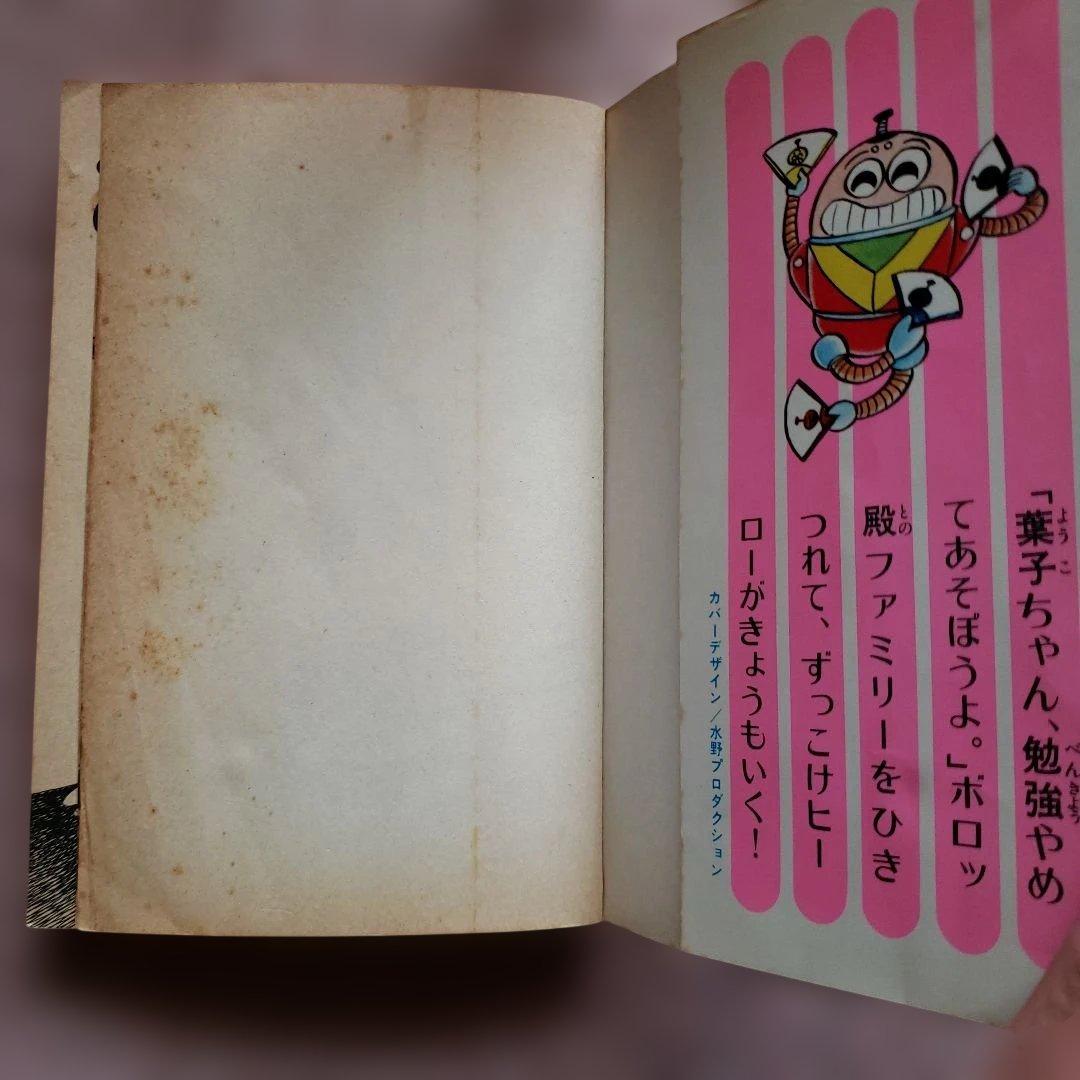 「葉子ちゃん、勉強やめ
てあそぼうよ。」ボロッ
殿ファミリーをひき
つれて、ずっこけヒー
ローがきょうもいく!
カバーデザイン/水野プロダクション